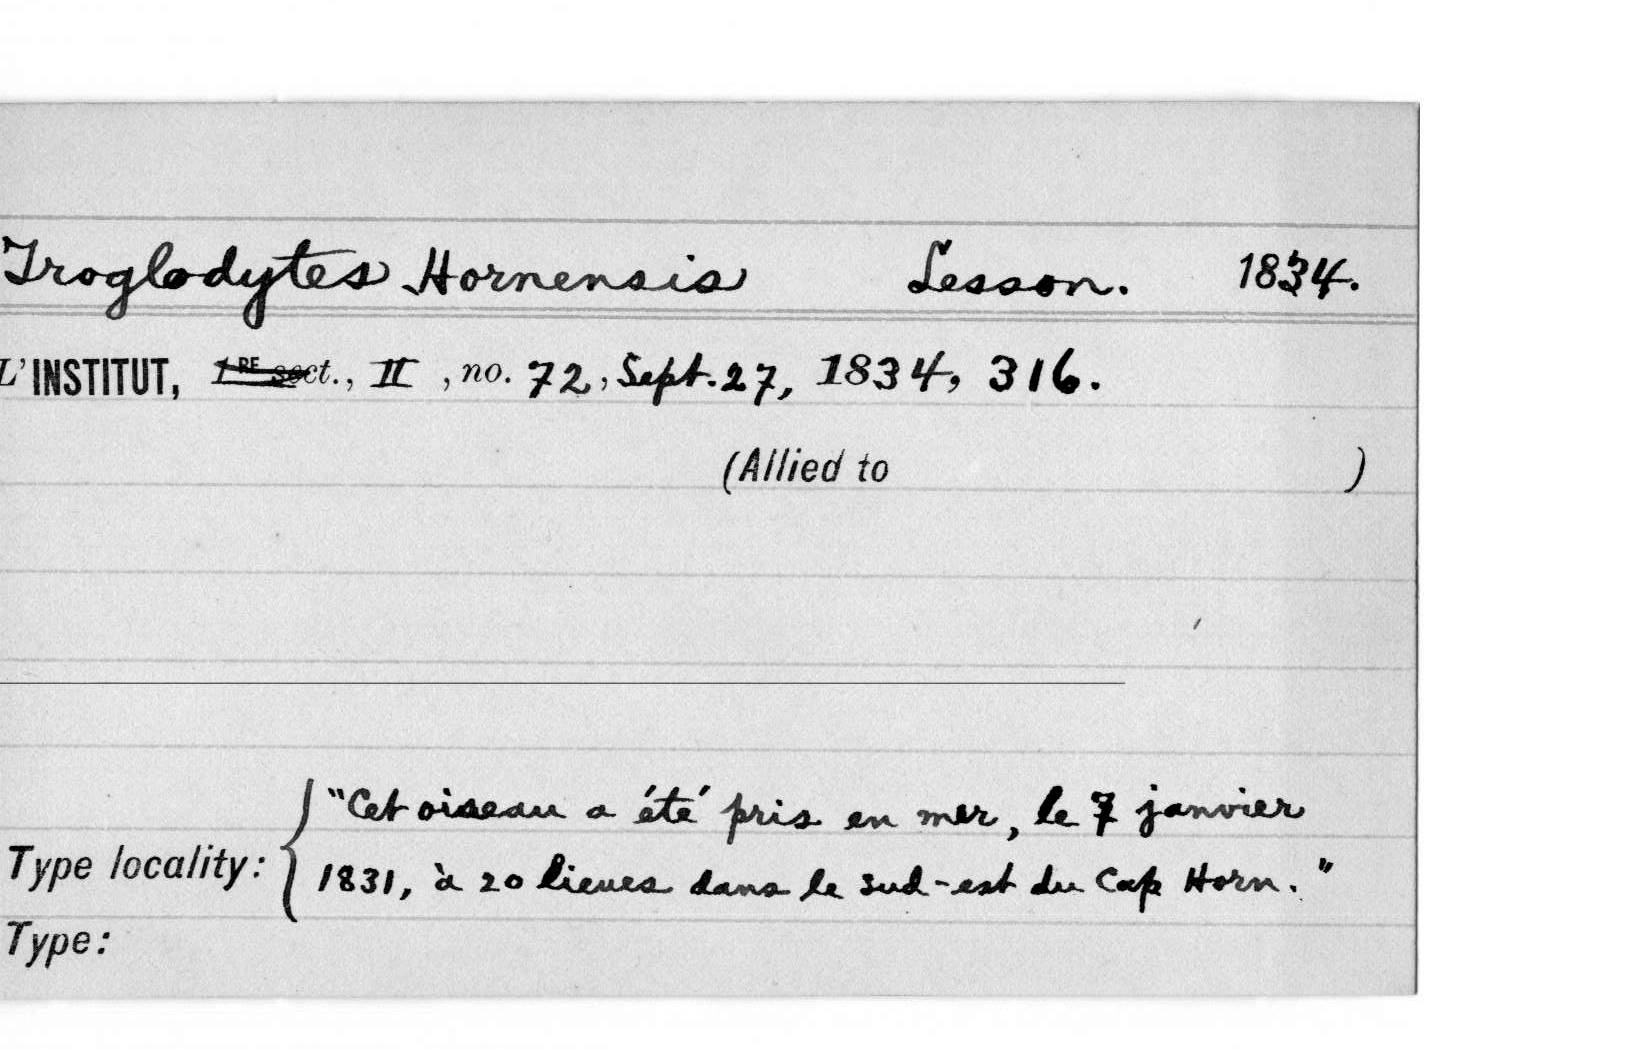 Troglodytes Hornensis Lesson. 1834.
L'INSTITUT, 1RE sect., II, no. 72, Sept. 27, 1834, 316.
(Allied to )
"Cet oiseau a été pris en mer, le 7 janvier
Type locality: 1831, à 20 lieues dans le sud-est du Cap Horn."
Type: